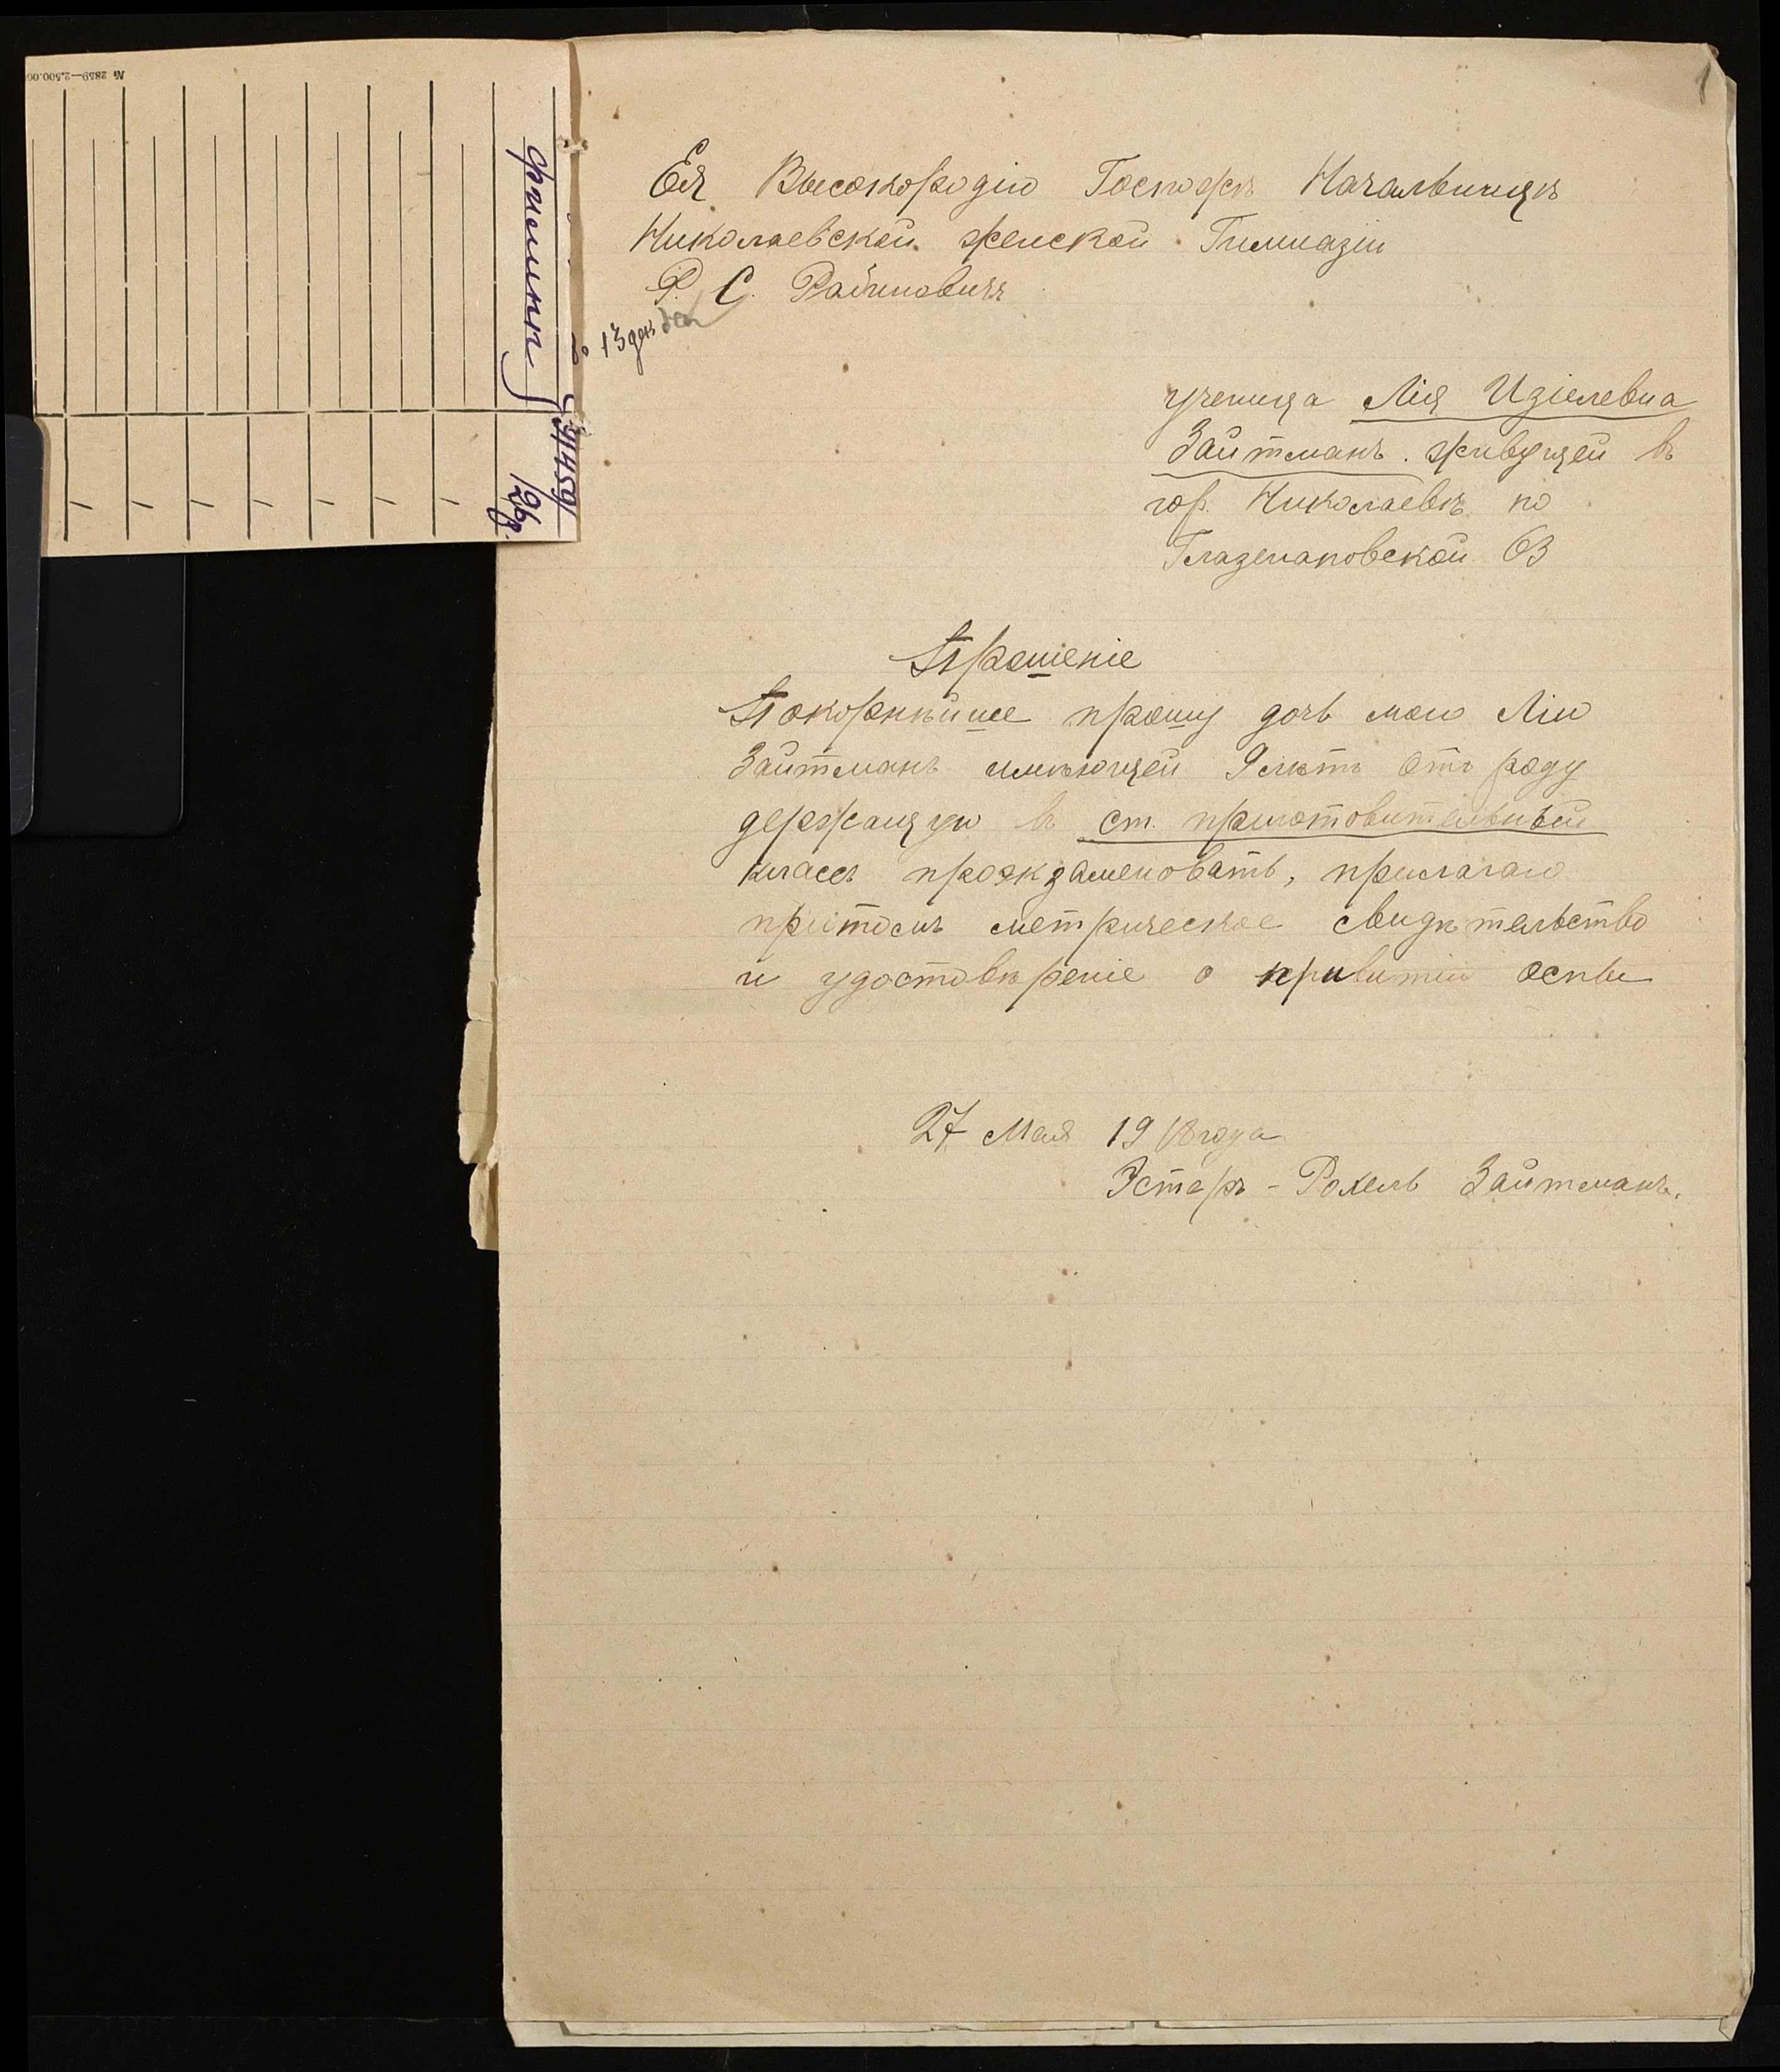 1
Ея Высокородію Госпожѣ Начальницѣ
Николаевской женской Гимназіи
Р. С. Рабиновичъ
13 дек
ученица Лія Изіелевна
Зайтманъ. живущей въ
гор. Николаевѣ по
Глазенаповской 63
Прошеніе
Покорнѣйше прошу дочь мою Лію
Зайтманъ имѣющей 9 лѣтъ отъ роду
держащую въ ст. приготовительный
классъ проэкзаменовать, прилагаю
притомъ метрическое свидѣтельство
и удостовѣреніе о привитіи оспы
27 Мая 1918 года
Эстеръ - Рохель Зайтманъ.
№ 2859—2.500.00